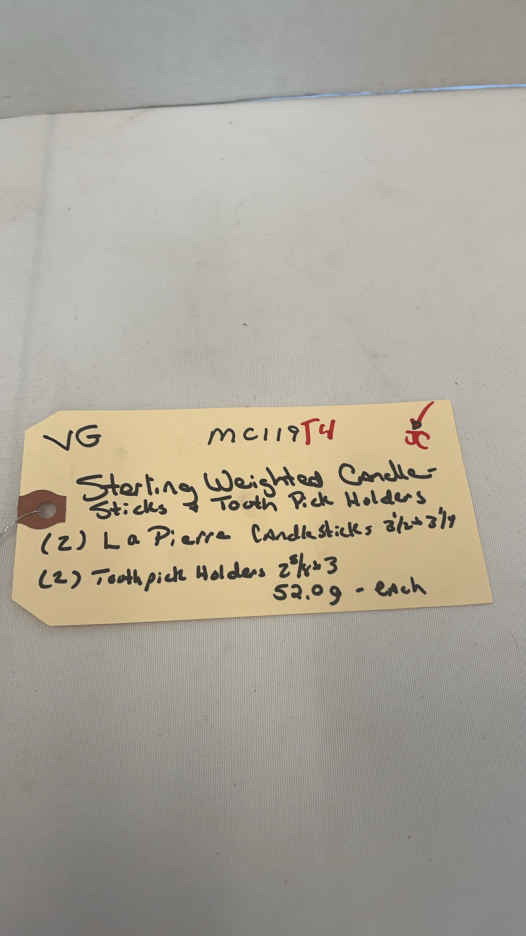 VG MC119T4 JC
Sterling Weighted Candle-
Sticks & Tooth Pick Holders
(2) La Pierre Candlesticks 3 1/2 x 3 1/4
(2) Toothpick Holders 2 5/8 x 3
52.0g - each